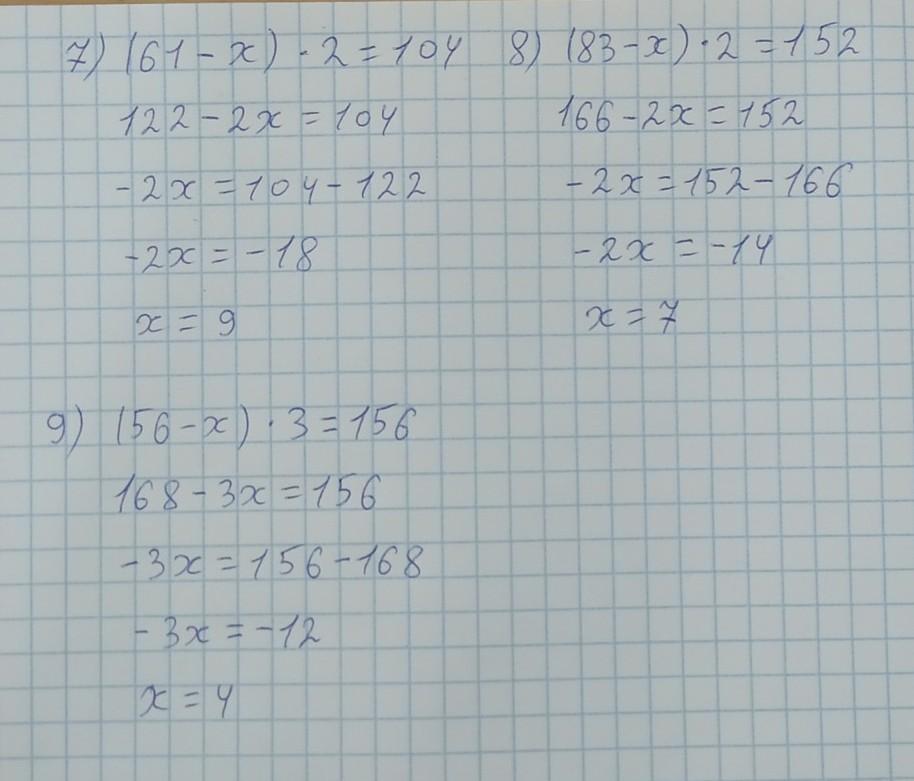 7) (61 - x) · 2 = 104
122 - 2x = 104
-2x = 104 - 122
-2x = -18
x = 9
8) (83 - x) · 2 = 152
166 - 2x = 152
-2x = 152 - 166
-2x = -14
x = 7
9) (56 - x) · 3 = 156
168 - 3x = 156
-3x = 156 - 168
-3x = -12
x = 4